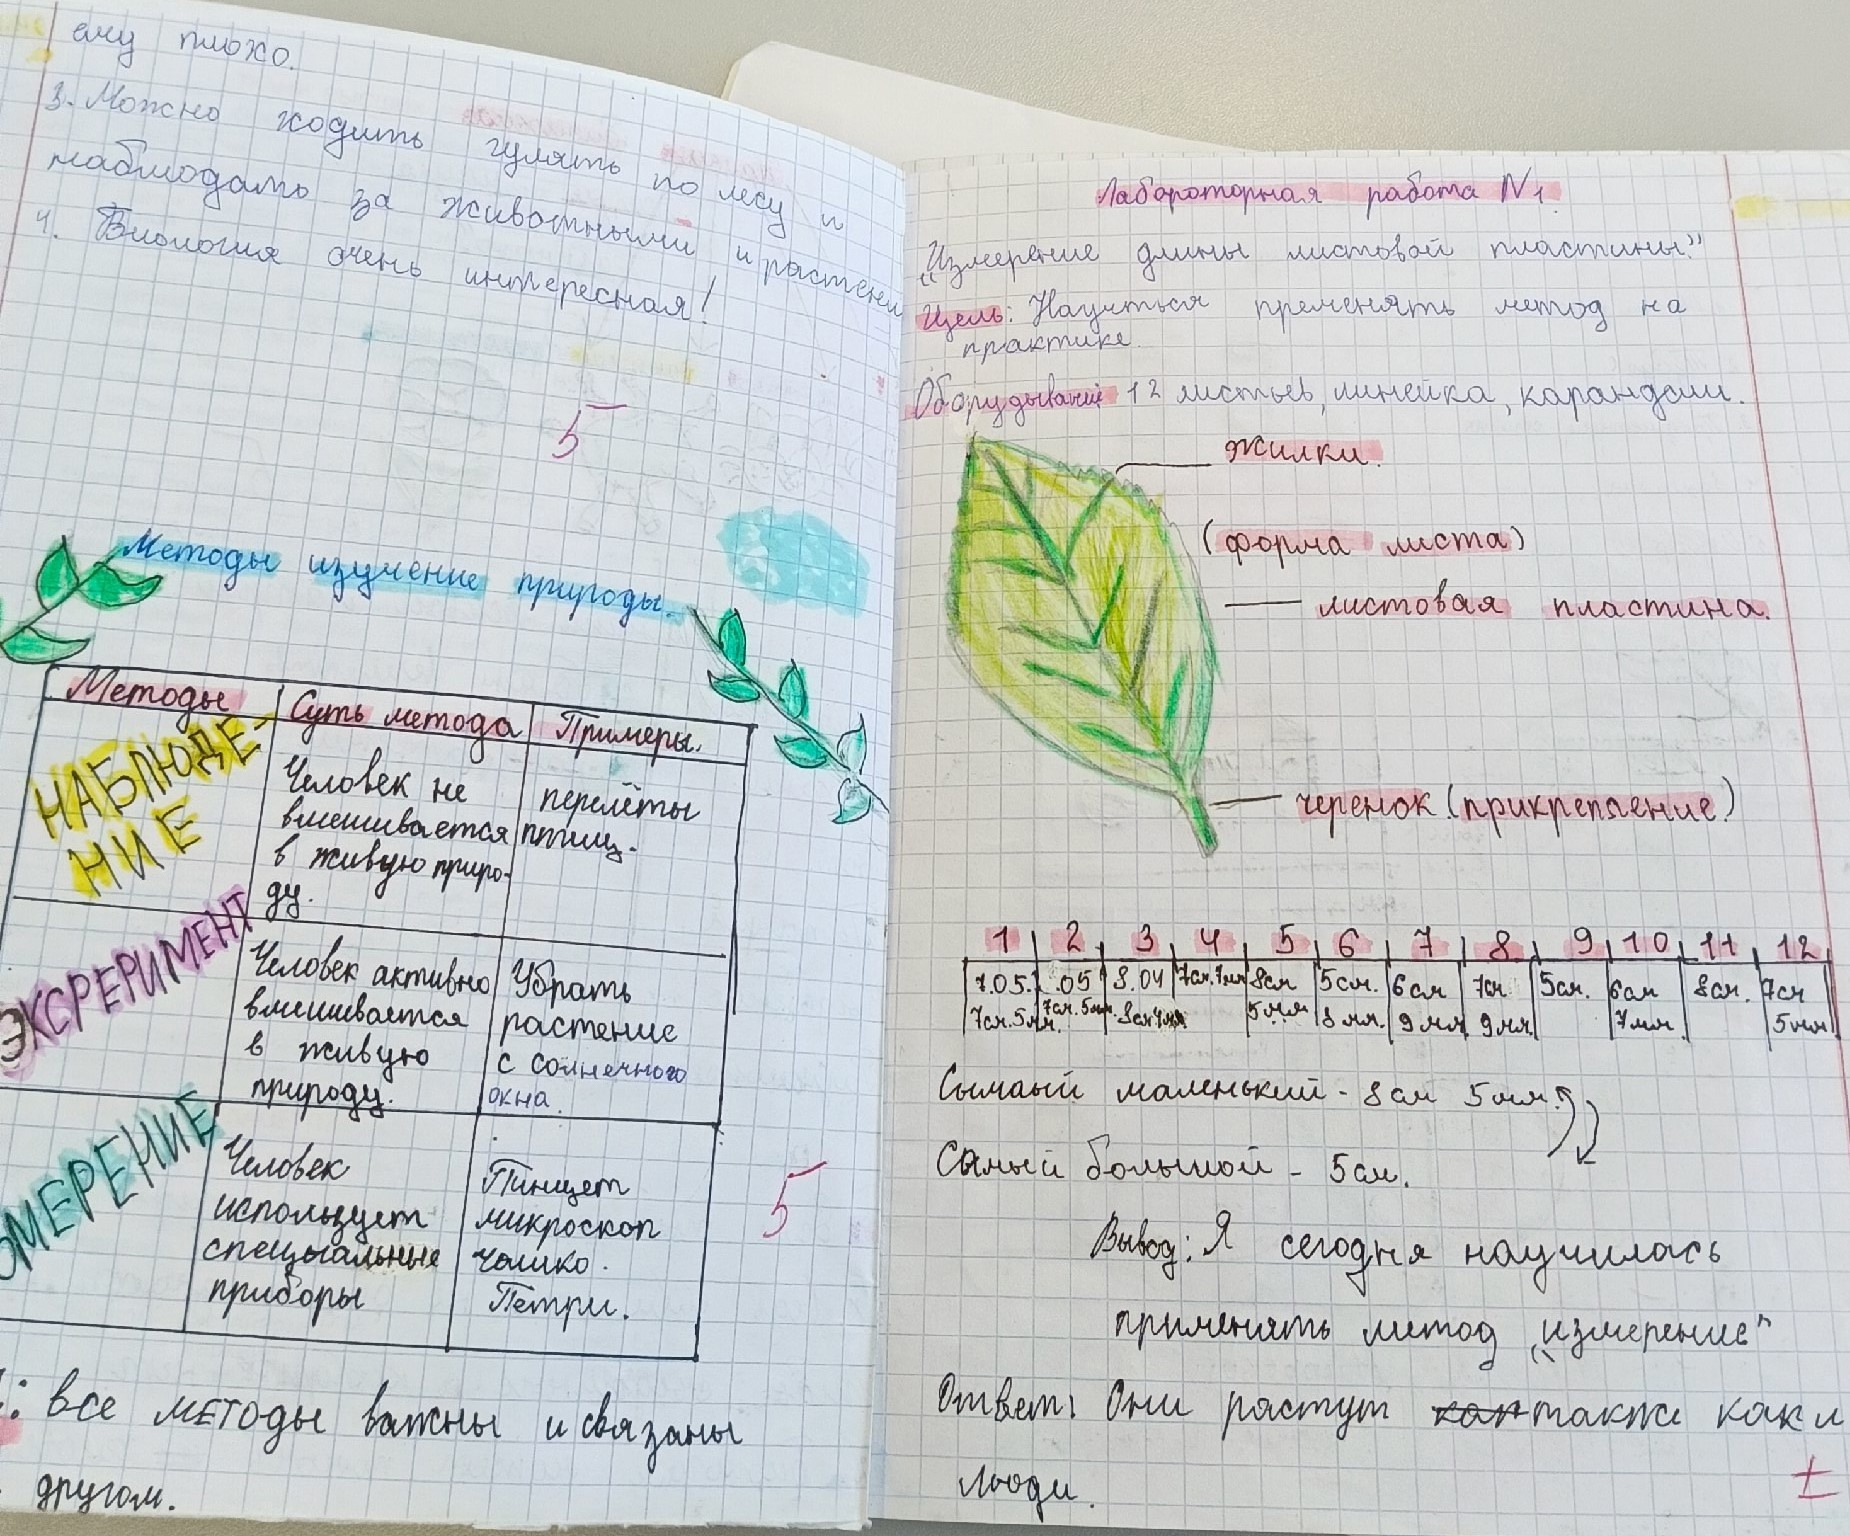 ему плохо.
3. Можно ходить гулять по лесу и
наблюдать за животными и растени
4. Биология очень интересная!
5
Методы изучение природы.
Методы Суть метода Примеры.
НАБЛЮДЕ-
НИЕ
Человек не
вмешивается
в живую приро-
ду.
перелёты
птиц.
ЭКСРЕРИМЕНТ
Человек активно
вмешивается
в живую
природу.
Убрать
растение
с солнечного
окна.
МЕРЕНИЕ
Человек
использует
специальные
приборы
Пинцет
микроскоп
чашко.
Петри.
5
: все методы важны и связаны
другом.
Лабороторная работа №1.
"Измерение длины листовой пластины"
Цель: Научиться пременять метод на
практике.
Оборудывание 12 листьев, линейка, карандаш.
жилки.
(форма листа)
листовая пластина.
черенок (прикрепление)
1 2 3 4 5 6 7 8 9 10 11 12
7.05. .05 8.04 7см.7мм 8см 5см. 6см 7см. 5см. 6см 8см. 7см
7см.5мм. 7см.5мм. 8см4мм 5мм 8мм. 9мм 9мм. 7мм. 5мм.
Сымаый маленький - 8см 5мм.
Самый большой - 5см.
Вывод: Я сегодня научилась
применять метод "измерение"
Ответ: Они растут также как и
люди.
±